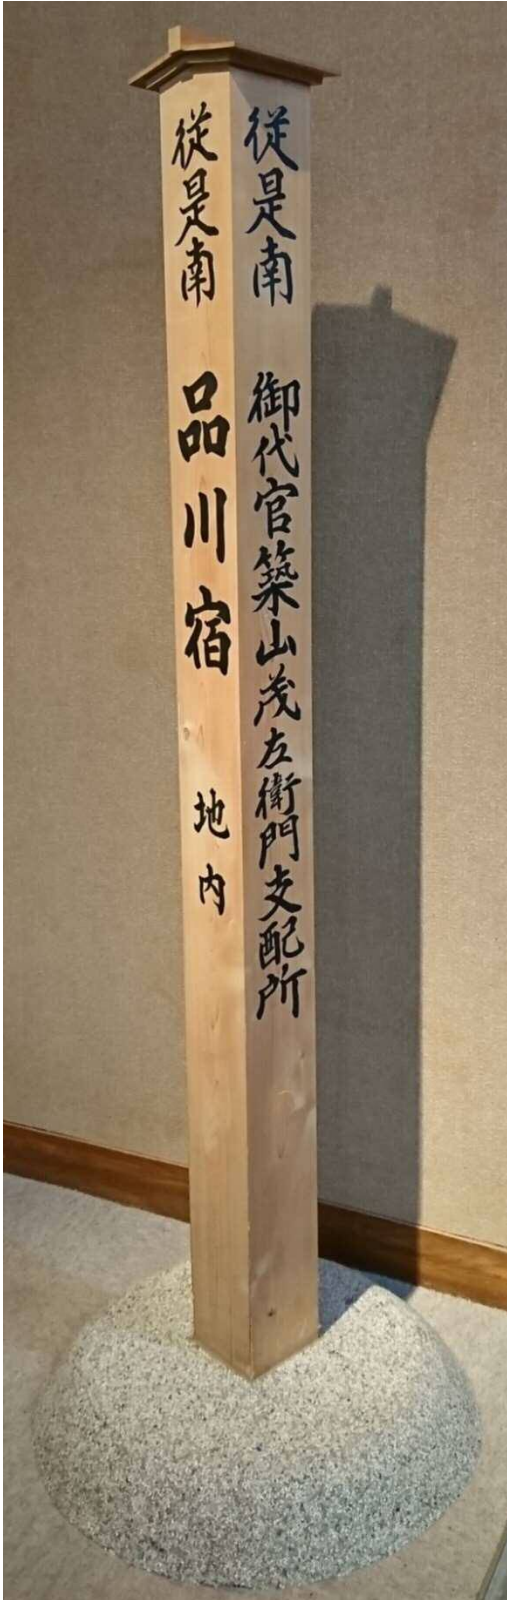 従是南 御代官築山茂左衛門支配所
従是南 品川宿 地内